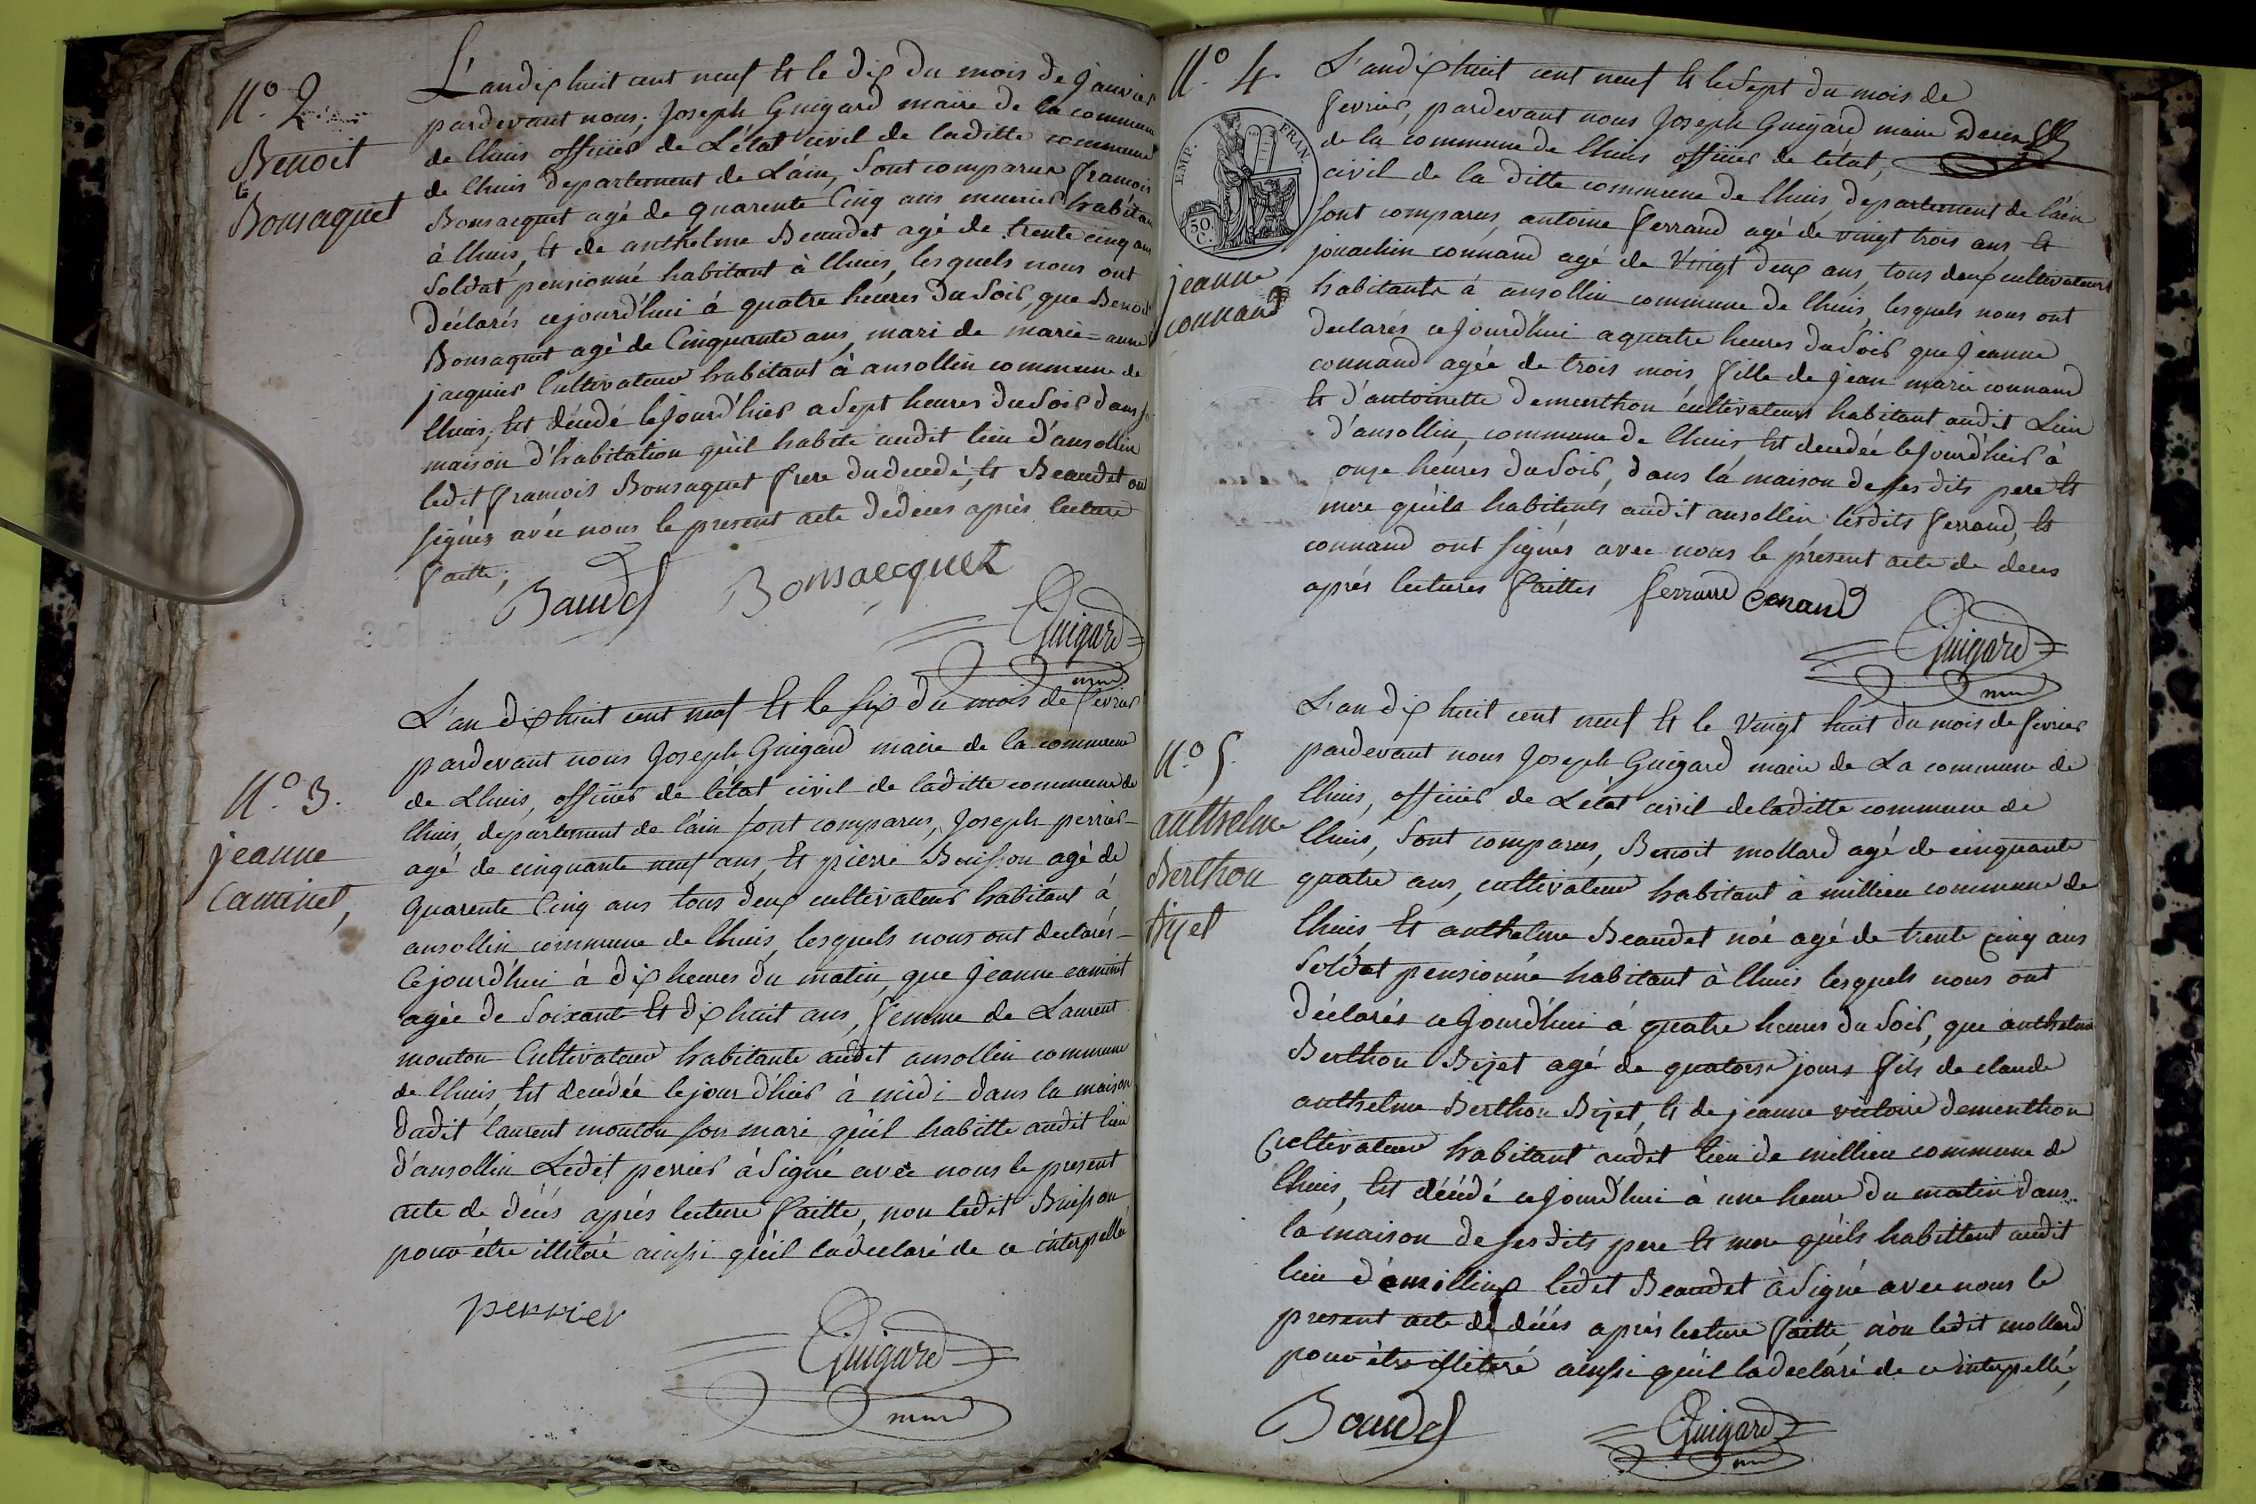 N.o 2
Benoit
Bonsaquet
L'an dix huit cent neuf Et le dix du mois de janvier
pardevant nous, Joseph Guigard maire de la commune
de lhuis officier de L'état civil de laditte commune
de lhuis departement de L'ain, Sont comparus francois
Bonsacquet agé de quarente Cinq ans meunier habitan
à lhuis, Et de anthelme Beaudet agé de trente cinq ans
Soldat pensionné habitant à lhuis, lesquels nous ont
déclarés cejourd'hui à quatre heures du Soir, que Benoit
Bonsaquet agé de Cinquante ans, mari de marie=anne
jacquier Cultivateur habitant à ansollin commune de
lhuis, Est décédé le jourd'hier a Sept heures du Soir dans sa
maison d'habitation qu'il habite audit lieu d'ansollin
ledit francois Bonsaquet frere du decedé, Et Beaudet ont
signés avec nous le present acte de deces après lecture
faitte;
Baudet Bonsaecquet
Guigard
N.o 3.
jeanne
Caminet,
L'an dix huit cent neuf Et le six du mois de fevrier
pardevant nous Joseph Guigard maire de la commune
de Lhuis, officier de l'état civil de laditte commune de
lhuis, departement de l'ain sont comparus, Joseph perrier
agé de cinquante neuf ans, Et pierre Buisson agé de
Quarente Cinq ans tous deux cultivateurs habitant à
ansollin commune de lhuis, lesquels nous ont declarés
Cejourd'hui à dix heures du matin, que jeanne caminet
agée de Soixante Et dix huit ans, femme de Laurent
mouton Cultivateur habitante audit ansollin commune
de lhuis, Est decedée le jour d'hier à midi dans la maison
dudit laurent mouton son mari qu'il habitte audit lieu
d'ansollin Ledit perrier à Signé avec nous le present
acte de décés aprés lecture faitte, non ledit Buisson
pour être illitéré ainsi qu'il la declaré de ce interpellé
perrier
Guigard
N.o 4.
jeanne
connand
EMP. FRAN.
50
C.
L'an dix huit cent neuf Et le Sept du mois de
fevrier, pardevant nous Joseph Guigard maire
de la commune de lhuis officier de l'état,
civil de la ditte commune de lhuis, departement de l'ain
sont comparus, antoine ferrand agé de vingt trois ans, Et
jouachim connand agé de Vingt deux ans, tous deux cultivateurs
habitants à ansollin commune de lhuis, lesquels nous ont
declarés cejourd'hui a quatre heures du Soir que jeanne
connand agée de trois mois, fille de jean marie connand
Et d'antoinette dementhon cultivateurs habitant audit Lieu
d'ansollin, commune de lhuis, Est decedée le jourd'hier à
onze heures du Soir, dans la maison de ses dits pere Et
mere qu'ils habitents audit ansollin lesdits ferrand, Et
connand ont signés avec nous le présent acte de deces
aprés lectures faittes ferrand Conand
Guigard
N.o 5.
anthelme
Berthon
Bijet
L'an dix huit cent neuf Et le Vingt huit du mois de fevrier
pardevant nous Joseph Guigard maire de La commune de
lhuis, officier de L'état civil de laditte commune de
lhuis, Sont comparus, Benoit mollard agé de cinquante
quatre ans, cultivateur habitant à millieu commune de
lhuis Et anthelme Beaudet noé agé de trente cinq ans
Soldat pensionné habitant à lhuis lesquels nous ont
déclarés cejourd'hui à quatre heures du Soir, que anthelme
Berthon Bijet agé de quatorze jours fils de claude
anthelme Berthon Bijet, Et de jeanne victoire dementhon
Cultivateur habitant audit lieu de millieu commune de
lhuis, Est décédé cejourd'hui à une heure du matin dans
la maison de ses dits pere Et mere qu'ils habittent audit
lieu ledit Beaudet à Signé avec nous le
present acte de décés aprés lecture faitte, non ledit mollard
pour être illiteré ainsi qu'il la declaré de ce interpellé,
Baudet Guigard